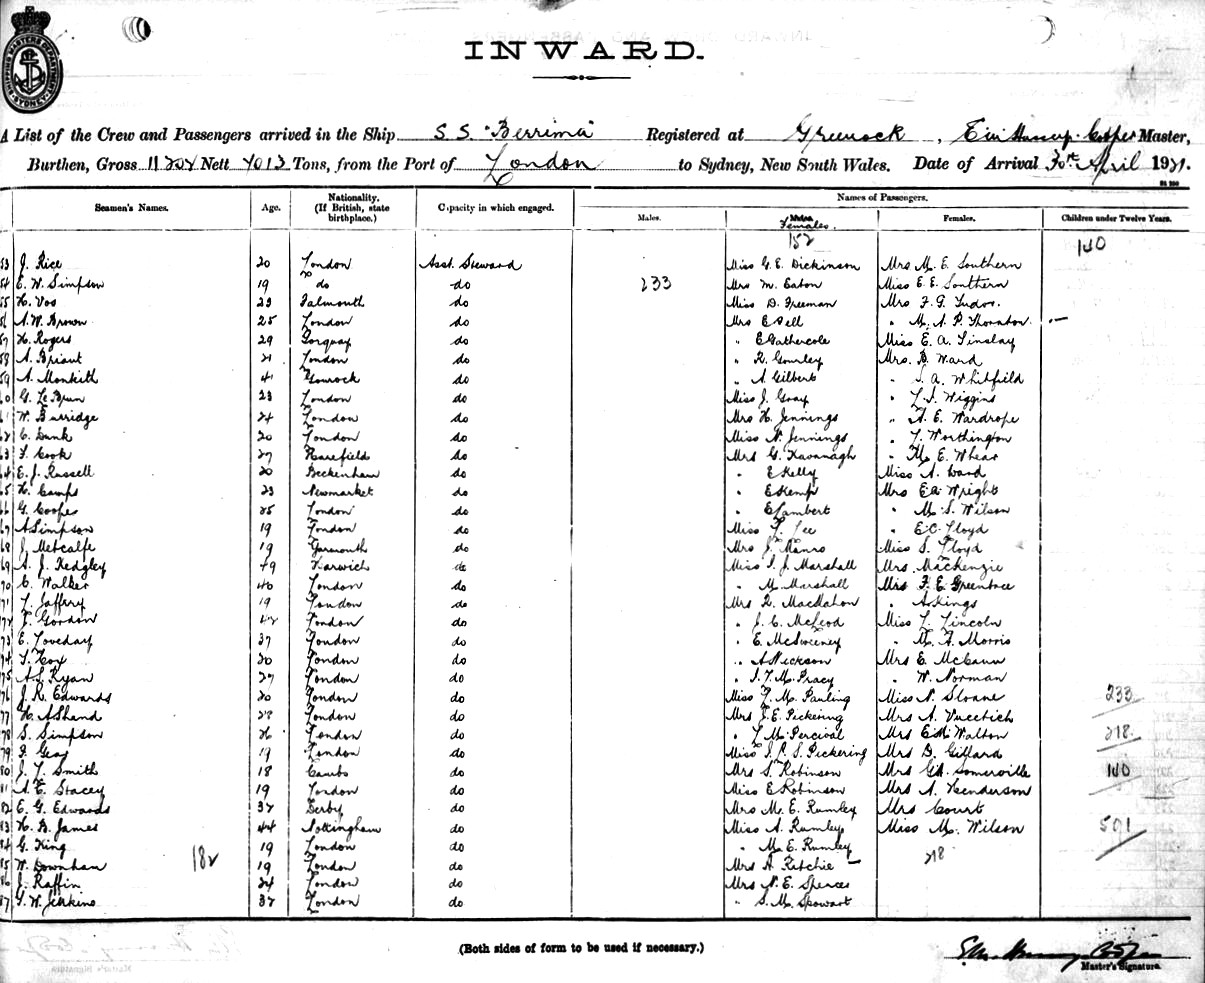 INWARD.
A List of the Crew and Passengers arrived in the Ship S.S. "Berrima" Registered at Greenock, Master,
Burthen, Gross 11202 Nett 7013 Tons, from the Port of London to Sydney, New South Wales. Date of Arrival 30th April 1921.
Seamen's Names. Age. Nationality. (If British, state birthplace.) Capacity in which engaged. Names of Passengers.
Males. Females. Females. Children under Twelve Years.
152 140
53 J. Rice 20 London Asst. Steward Miss G. E. Dickinson Mrs M. E. Southern
54 E. W. Simpson 19 do do 233 Mrs M. Eaton Miss E. E. Southern
55 H. Vos 23 Falmouth do Miss D. Freeman Mrs F. G. Tudor.
56 A. W. Brown 25 London do Mrs E Dell " M. A. P. Thornton
57 H. Rogers 29 Torquay do " E Gathercole Miss E. A. Tinslay
58 A. Briant 21 London do " R. Gourley Mrs. B. Ward
59 A. Monkith 41 Gourock do " A Gilbert " S. A. Whitfield
60 G. Le Brun 23 London do Miss J. Gray " L. S. Wiggins
61 W. Burridge 24 London do Mrs H. Jennings " A. E. Wardrope
62 C. Dunk 20 London do Miss N. Jennings " L. Worthington
63 S. Cook 27 Harefield do Mrs G. Kavanagh " M. E. Whear
64 E. J. Russell 20 Beckenham do " E Kelly Miss A. Ward
65 H. Camps 23 Newmarket do " E Kemp Mrs E A. Wright
66 G. Cooper 25 London do " E Lambert " M. S. Wilson
67 A Simpson 19 London do Miss L. Lee " E. C. Lloyd
68 J. Metcalfe 19 Yarmouth do Mrs J. Manro Miss S. Lloyd
69 A. J. Hedgley 49 Harwich do Miss I. J. Marshall Mrs. Mackenzie
70 C. Walker 40 London do " M. Marshall Mrs F. E. Greentree
71 L. Jaffrey 19 London do Mrs R. MacMahon " A Kings
72 J. Gordon 42 London do " J. C. McLeod Miss L. Lincoln
73 E. Loveday 37 London do " E. McSweeney " M. A. Morris
74 S. Cox 20 London do " A Nickson Mrs E. McCann
75 A. L. Ryan 27 London do " I. L. M. Pracy " W. Norman
76 J. R. Edwards 20 London do Miss L. M. Pauling Miss N. Sloane 233
77 H. A Shand 28 London do Mrs J. E. Pickering Mrs A. Vucetich
78 S. Simpson 26 London do " L. M. Percival Mrs E. M. Walton 218
79 F. Gray 19 London do Miss I. R. S. Pickering Mrs D. Giffard
80 J. L. Smith 18 Cambs do Mrs S. Robinson Mrs G A. Somerville 140
81 A. E. Stacey 19 London do Miss E Robinson Mrs A. Henderson
82 E. G. Edwards 32 Derby do Mrs M. E. Rumley Mrs Court
83 H. B. James 44 Nottingham do Miss A. Rumley Miss M. Wilson 591
84 G. King 19 London do " M. E. Rumley 218
85 W. Downham 182 19 London do Mrs A. Ritchie
86 J. Raffin 24 London do Mrs N. E. Spences
87 G. W. Jenkins 32 London do " S. M. Spowart
(Both sides of form to be used if necessary.)
Master's Signature.